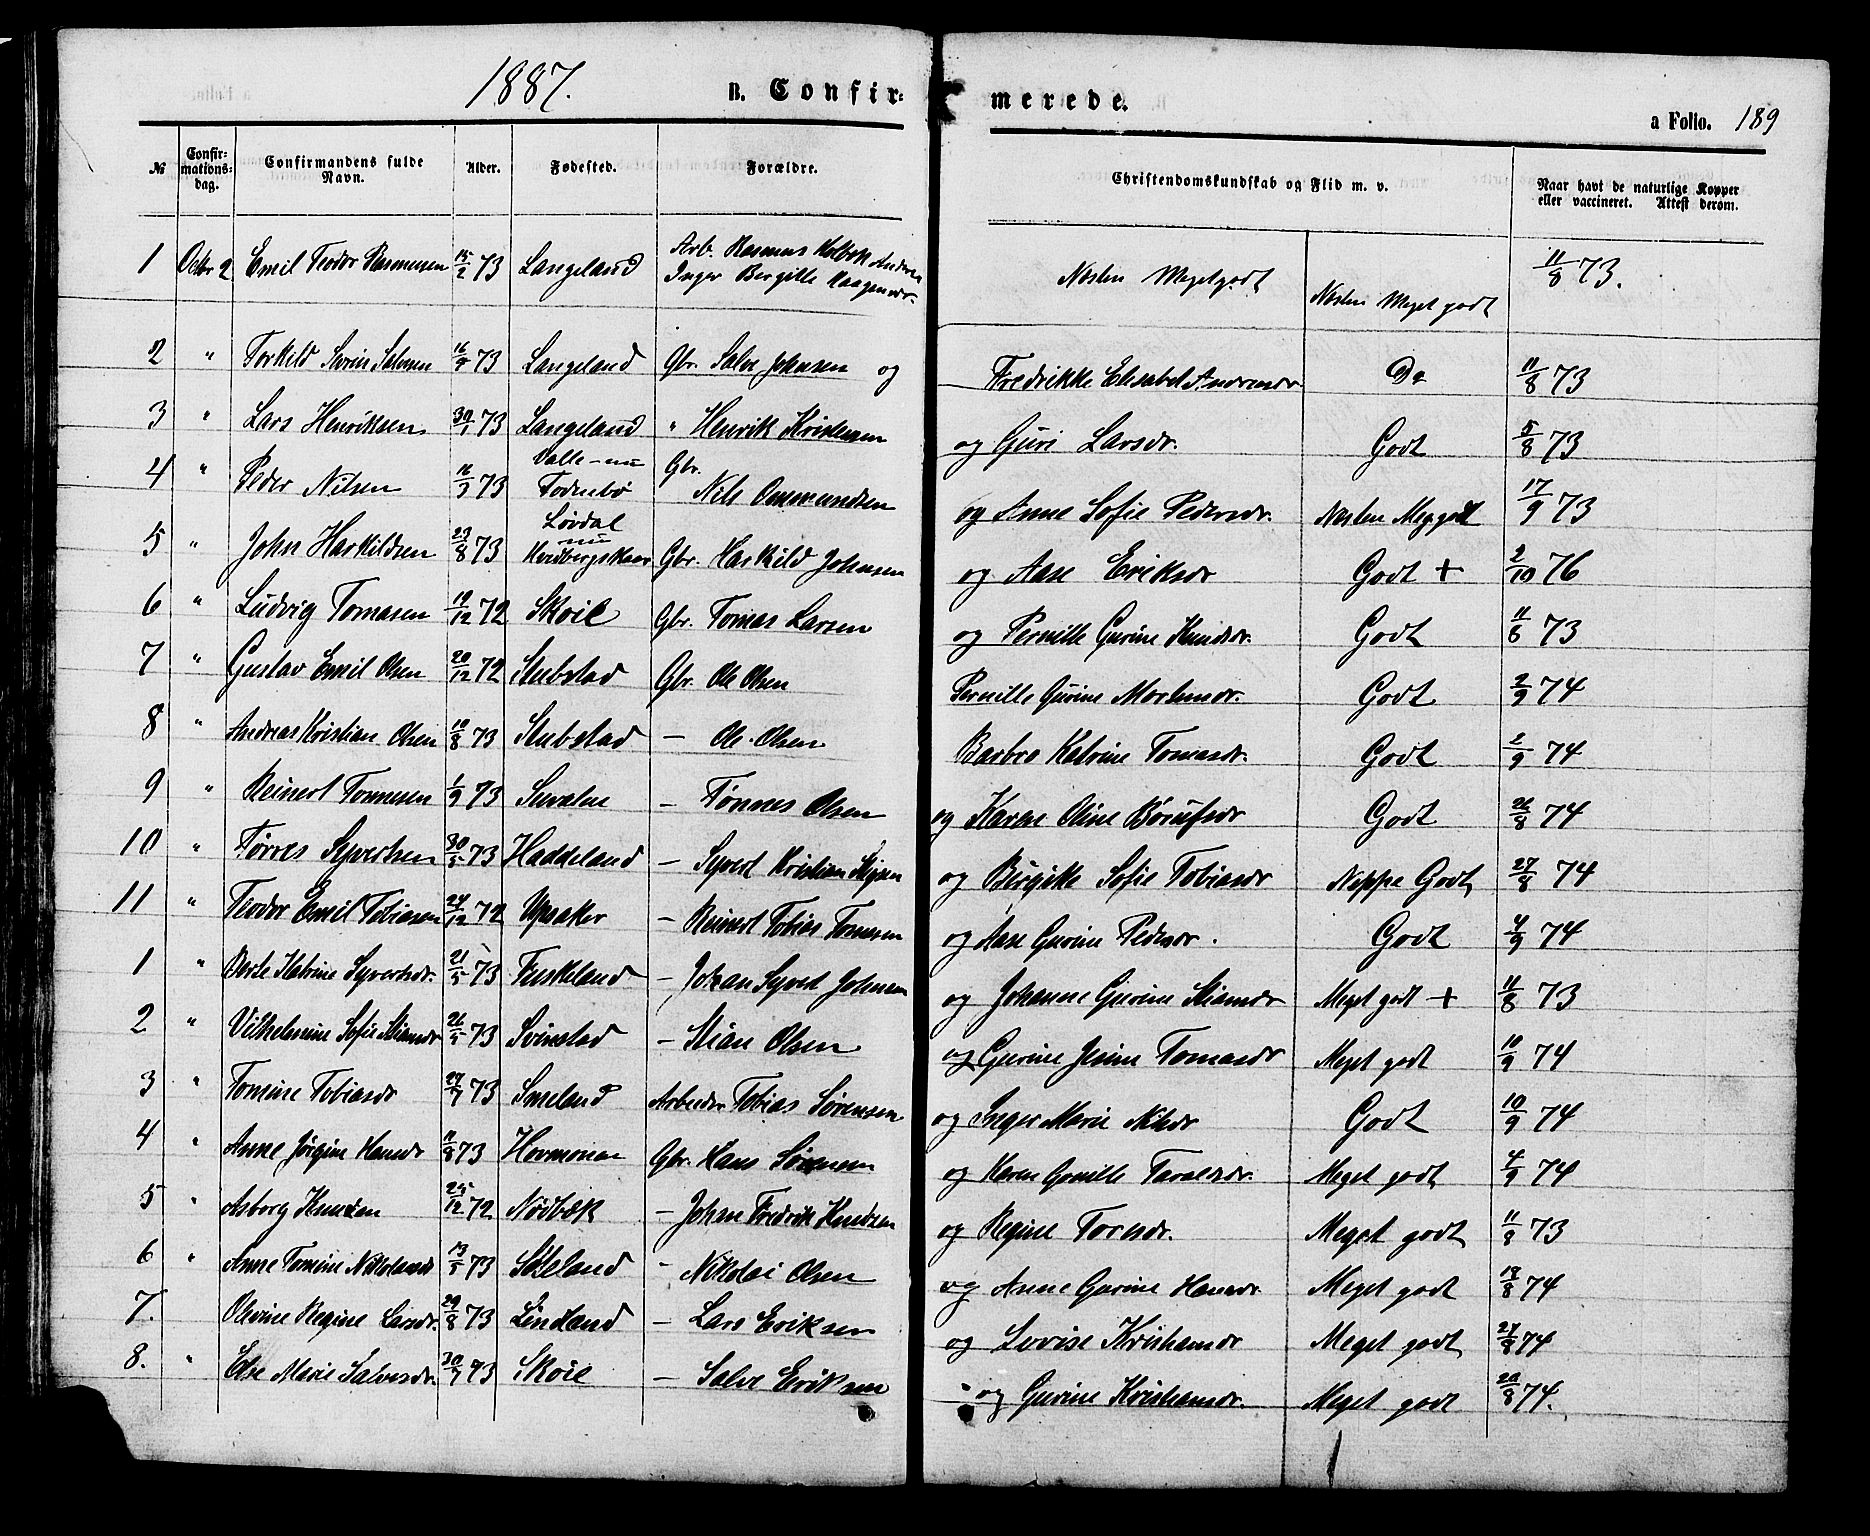 1887.
B. Confir-
merede.
a Folio. 189
№ Confir-mations-dag. Confirmandens fulde Navn. Alder. Fødested. Forældre. Christendomskundskab og Flid m. v. Naar havt de naturlige Kopper eller vaccineret. Attest derom.
1 Octbr 2 Emil Teodor Rasmusen 15/2 73 Langeland Arb. Rasmus Holbæk Andersen Inger Bergitte Haagensdr. Næsten Megetgodt Næsten Meget godt 11/8 73.
2 " Torkild Sørin Salvesen 16/ 73 Langeland Gbr. Salve Johnsen og Fredrikke Elisabet Andersdr Do 11/8 73
3 " Lars Henriksen 30/1 73 Langeland " Henrik Kristensen og Guri Larsdr. Godt 5/8 73
4 " Peder Nilsen 16/ 73 Valle-nu Fodnebø Gbr. Nils Ommundsen og Anne Sofie Pedersdr. Næsten Meg godt 17/9 73
5 " John Harkildsen 23/8 73 Løvdal nu Gbr. Harkild Johnsen og Aase Eriksdr Godt + 2/10 76
6 " Ludvig Tomasen 19/12 72 Skoie Gbr. Tomas Larsen og Pernille Gurine Knudsdr. Godt 11/ 73
7 " Gustav Emil Olsen 20/12 72 Stubstad Gbr. Ole Olsen Pernille Gurine Mortensdr. Godt 2/9 74
8 " Andreas Kristian Olsen 10/8 73 Stubstad — Ole Olsen Barbro Katrine Tomasdr. Godt 2/9 74
9 " Reinert Tønnesen 1/9 73 — Tønnes Olsen og Karen Oline Børufsdr Godt 26/8 74
10 " Tørres Syvertsen 30/5 73 Haddeland — Syvert Kristian og Birgitte Sofie Tobiasdr Neppe Godt 27/8 74
11 " Teodor Emil Tobiasen 24/12 72 Upsaker — Reinert Tobias Tomesen og Aase Gurine Pedersdr. Godt 4/9 74
1 " Berte Katrine Syvertsdr. 21/5 73 Fuskeland — Johan Syvert Johnsen og Johanne Gurine Stiansdr Meget godt + 11/8 73
2 " Vilhelmine Sofie Stiansdr 26/5 73 Svinstad — Stian Olsen og Gurine Jesine Tomasdr Meget godt 10/9 74
3 " Tomine Tobiasdr 27/ 73 Smeland Arbeider Tobias Sørensen og Inger Marie Nilsdr Godt 10/9 74
4 " Anne Jørgine Hansdr 11/8 73 Hormonen Gbr. Hans Sørensen og Karen Gunille Taraldsdr. Meget godt 4/9 74
5 " Asborg Knudsen 25/12 72 Nødbæk — Johan Fredrik Knudsen og Regine Toresdr. Meget godt 11/8 73
6 " Anne Tomine Nikolaisdr 13/5 73 — Nikolai Olsen og Anne Gurine Hansdr. Meget godt 18/8 74
7. " Olevine Regine Larsdr. 29/8 73 Lindland — Lars Eriksen og Lovise Kristiansdr Meget godt 27/8 74
8. " Else Marie Salvesdr. 30/ 73 Skoie — Salve Eriksen - og Gurine Kristiansdr. Meget godt 20/8 74.